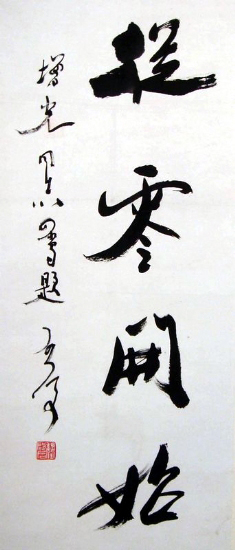 從零開始
增光同志屬題